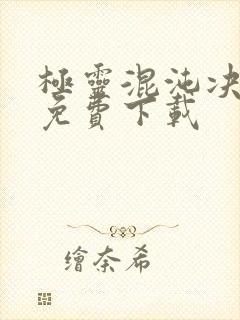 極靈混沌决
免費下載
繪奈希